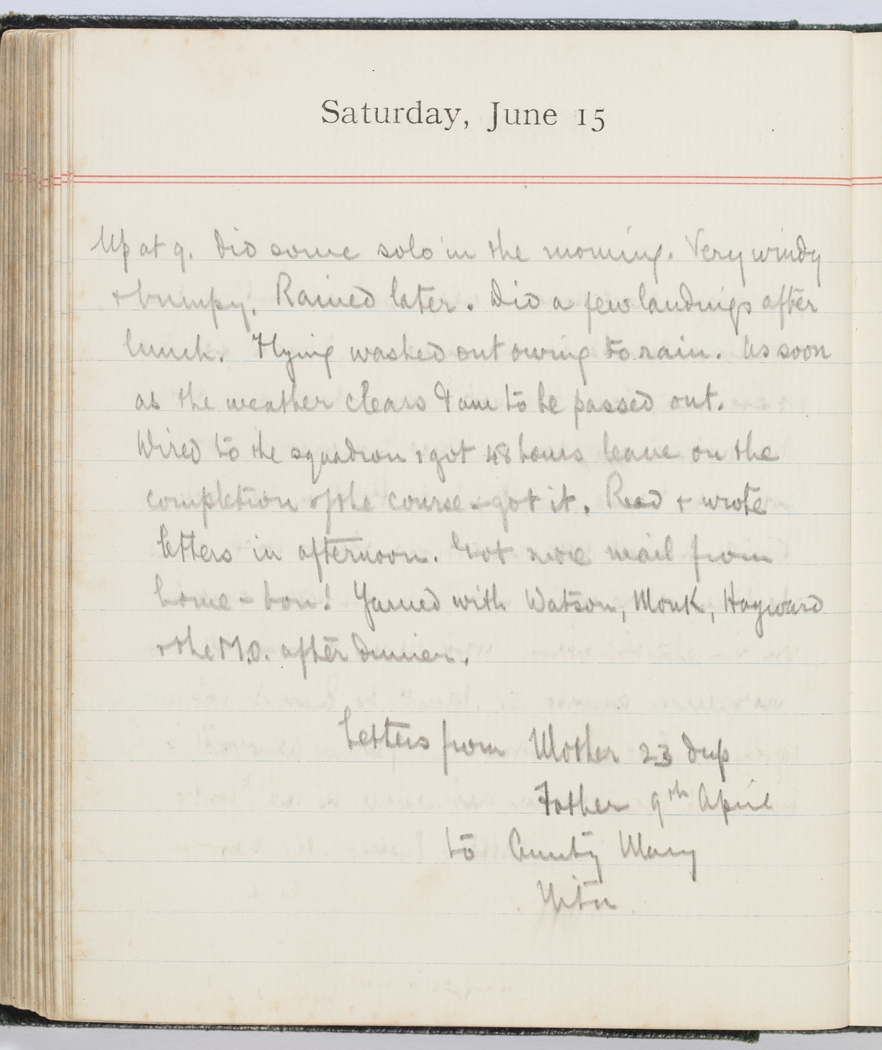 Saturday, June 15
Up at 9. Did some solo in the morning. Very windy
& bumpy. Rained later. Did a few landings after
lunch. Flying washed out owing to rain. As soon
as the weather clears I am to be passed out.
Wired to the squadron & got 48 hours leave on the
completion of the course - got it. Read & wrote
letters in afternoon. Got more mail from
home - bon! Yarned with Watson, Monk, Hayward
& the M.O. after dinner.
Letters from Mother 23 dup
Father 9th April
to Aunty Mary